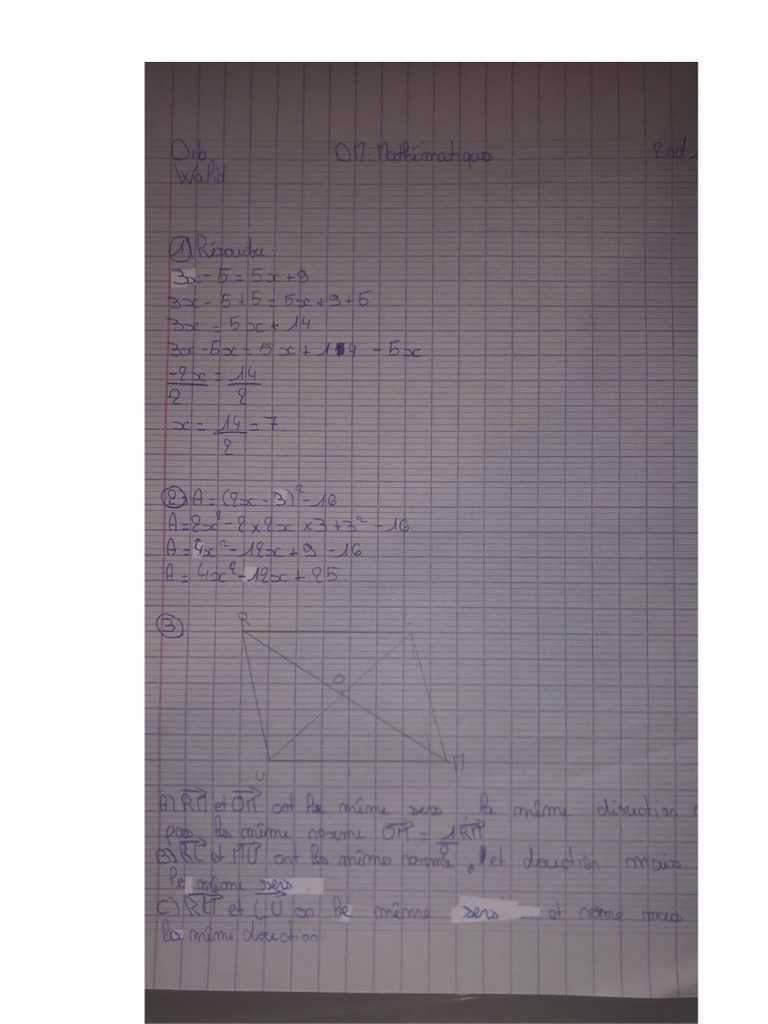 Dib DM Mathématiques 2nd
Walid
1) Résoudre:
3x - 5 = 5x + 9
3x - 5 + 5 = 5x + 9 + 5
3x = 5x + 14
3x - 5x = 5x + 14 - 5x
-2x/2 = 14/2
x = 14/2 = 7.
2) A = (2x - 3)² - 16
A = 2x² - 2 x 2x x 3 + 3² - 16
A = 4x² - 12x + 9 - 16
A = 4x² - 12x + 25.
3)
R
O
U M
A) RM et OM ont le même sens la même direction
pas la même norme OM = 1/2 RM
B) RL et MU ont les même norme, et direction mais
le même sens
C) et LU on le même sens et norme mais
la même direction